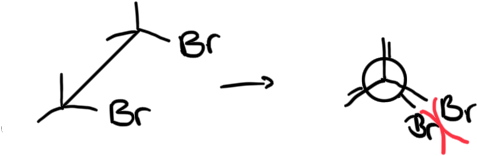 Br
Br
Br
Br